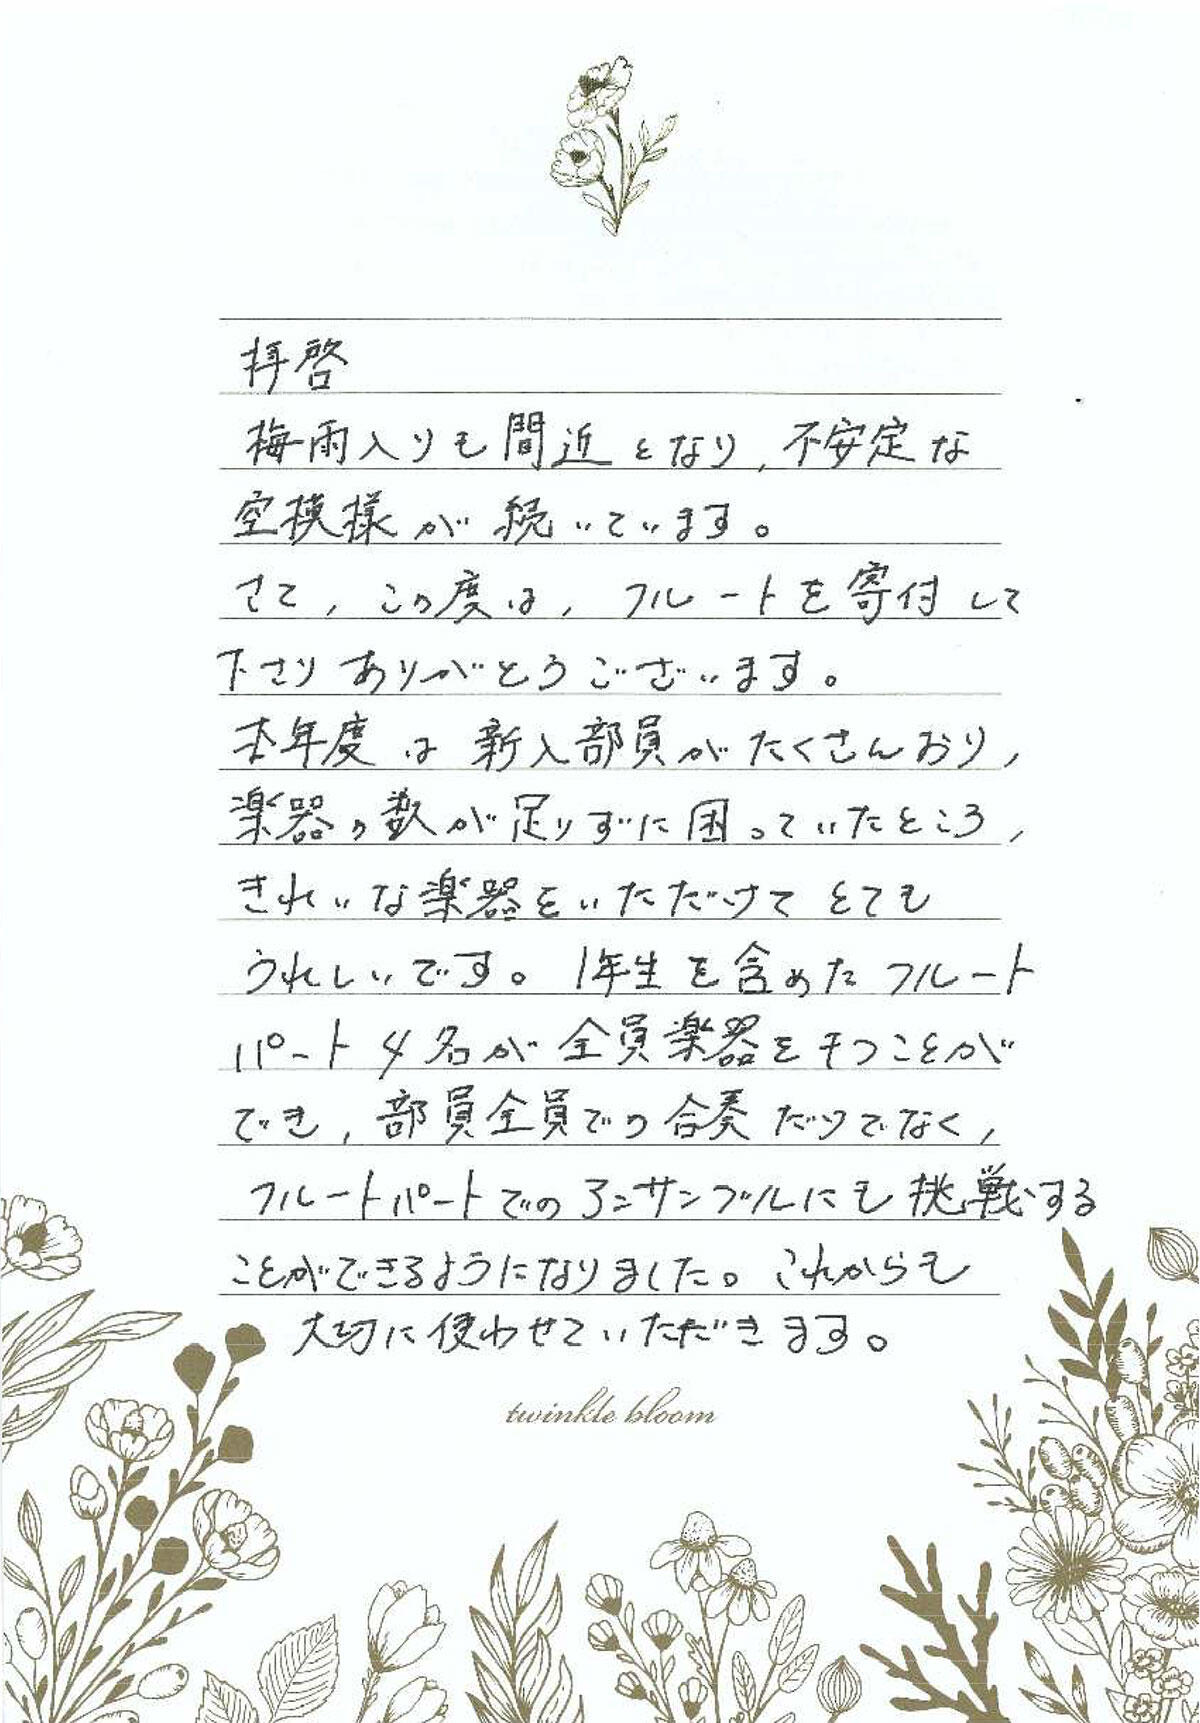 拝啓
梅雨入りも間近となり、不安定な
空模様が続いています。
さて、この度は、フルートを寄付して
下さりありがとうございます。
本年度は新入部員がたくさんおり、
楽器の数が足りずに困っていたところ、
きれいな楽器をいただけてとても
うれしいです。1年生を含めたフルート
パート4名が全員楽器をもつことが
でき、部員全員での合奏だけでなく、
フルートパートでのアンサンブルにも挑戦する
ことができるようになりました。これからも
大切に使わせていただきます。
twinkle bloom